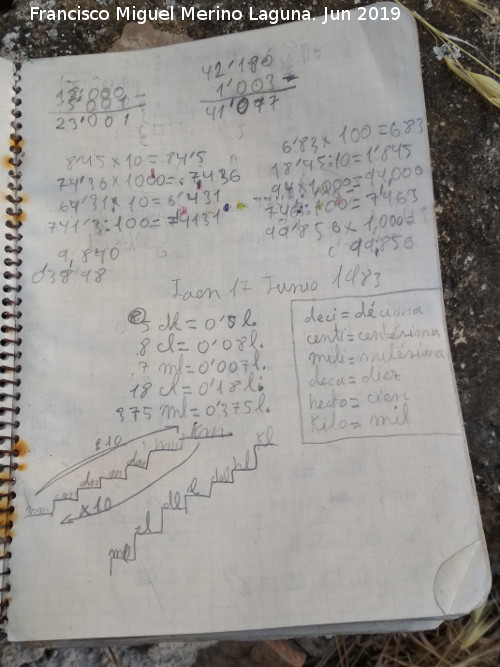 Francisco Miguel Merino Laguna. Jun 2019
23'001
42'180
1'003 -
41'077
8'45 x 10 = 84'5
74'36 x 1000 = 7436
64'31 x 10 = 6'431
741'3 : 100 = 74131
9,840
038'98
6'83 x 100 = 683
18'45 : 10 = 1'845
94 x 1,000 = 94,000
746 : 100 = 7'463
49'856 x 1,000 =
99,856
Jaen 17 Junio 1983
5 dl = 0'5 l.
8 cl = 0'08 l.
7 ml = 0'007 l.
18 cl = 0'18 l.
375 ml = 0'375 l.
deci = décima
centi = centésima
mili = milésima
deca = diez
hecto = cien
Kilo = mil
: 10
Km
x 10
kl
hl
dal
l
dl
cl
ml